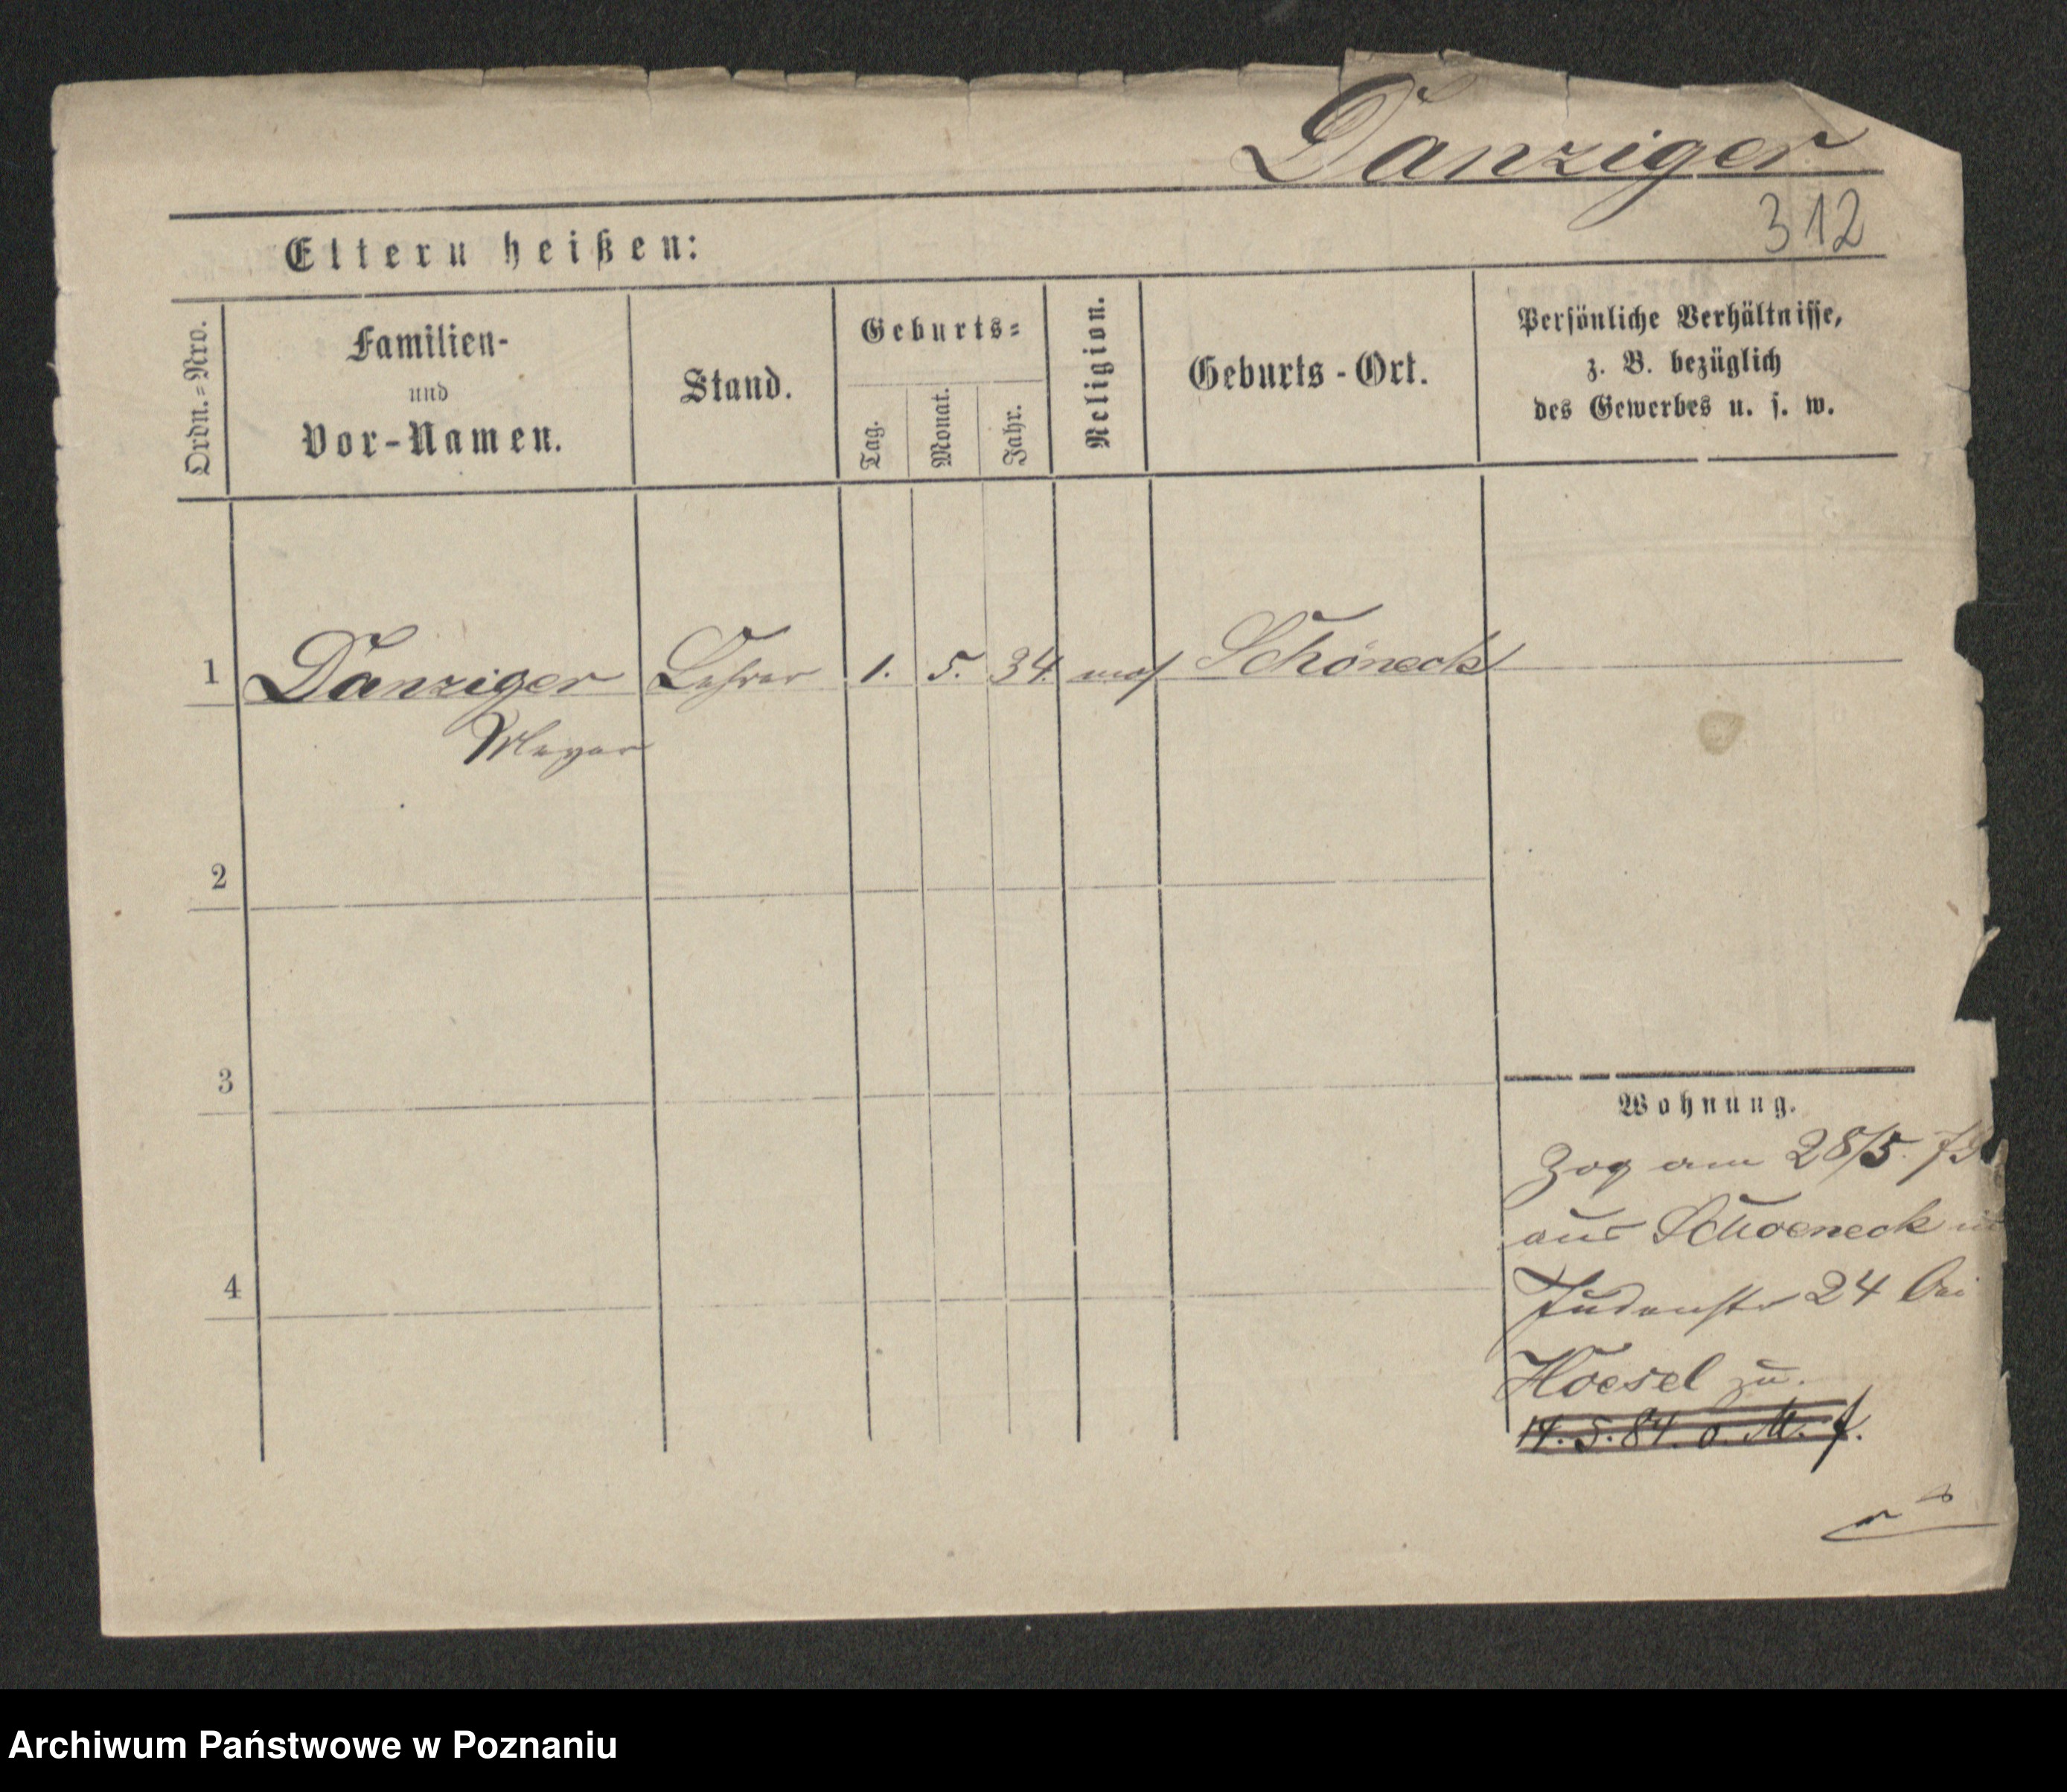 Danziger
312
Eltern heißen:
Ordn.=Nro.
Familien-
und
Vor-Namen.
Stand.
Geburts=
Tag.
Monat.
Jahr.
Religion.
Geburts-Ort.
Persönliche Verhältnisse,
z. B. bezüglich
des Gewerbes u. s. w.
1 Danziger Lehrer 1. 5. 34. mos Schöneck
Meyer
2
3
4
Wohnung.
Zog am 28/5. 79
aus Schoeneck
Judenstr 24 bei
Hoesel zu.
14. 5. 84. o. M. f.
Archiwum Państwowe w Poznaniu